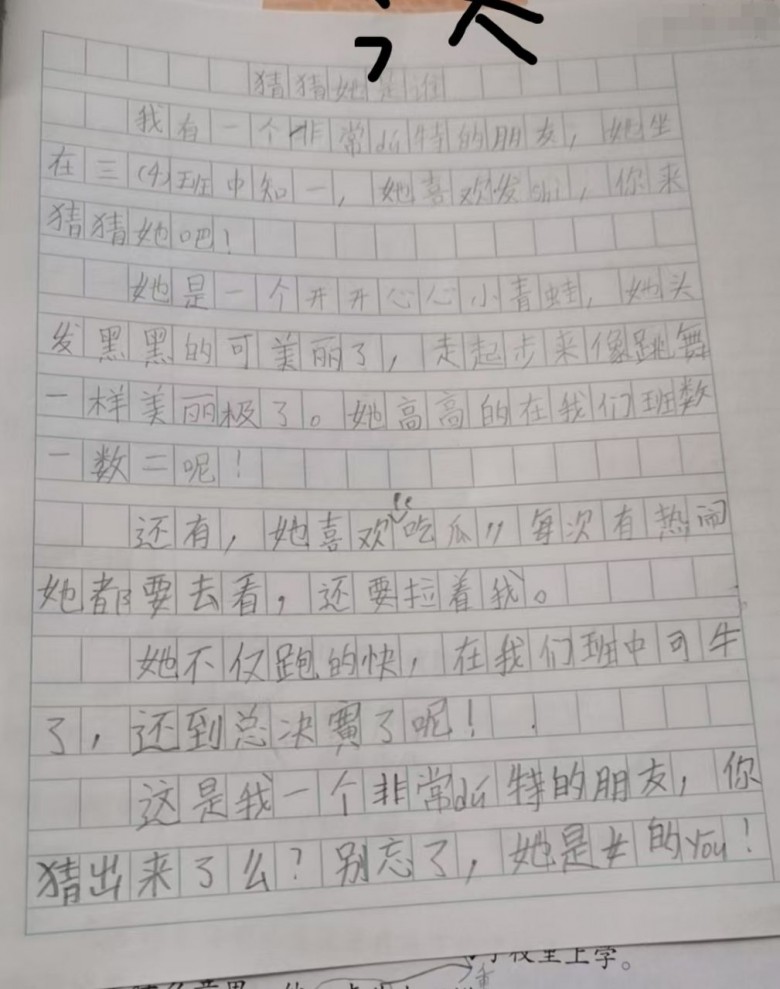 猜猜她是谁
我有一个非常dú特的朋友，她坐
在三(4)班中知一，她喜欢发shi，你来
猜猜她吧！
她是一个开开心心小青蛙，她头
发黑黑的可美丽了，走起步来像跳舞
一样美丽极了。她高高的在我们班数
一数二呢！
还有，她喜欢“吃瓜”每次有热闹
她都要去看，还要拉着我。
她不仅跑的快，在我们班中可牛
了，还到总决赛了呢！
这是我一个非常dú特的朋友，你
猜出来了么？别忘了，她是女的you！
校里上学。